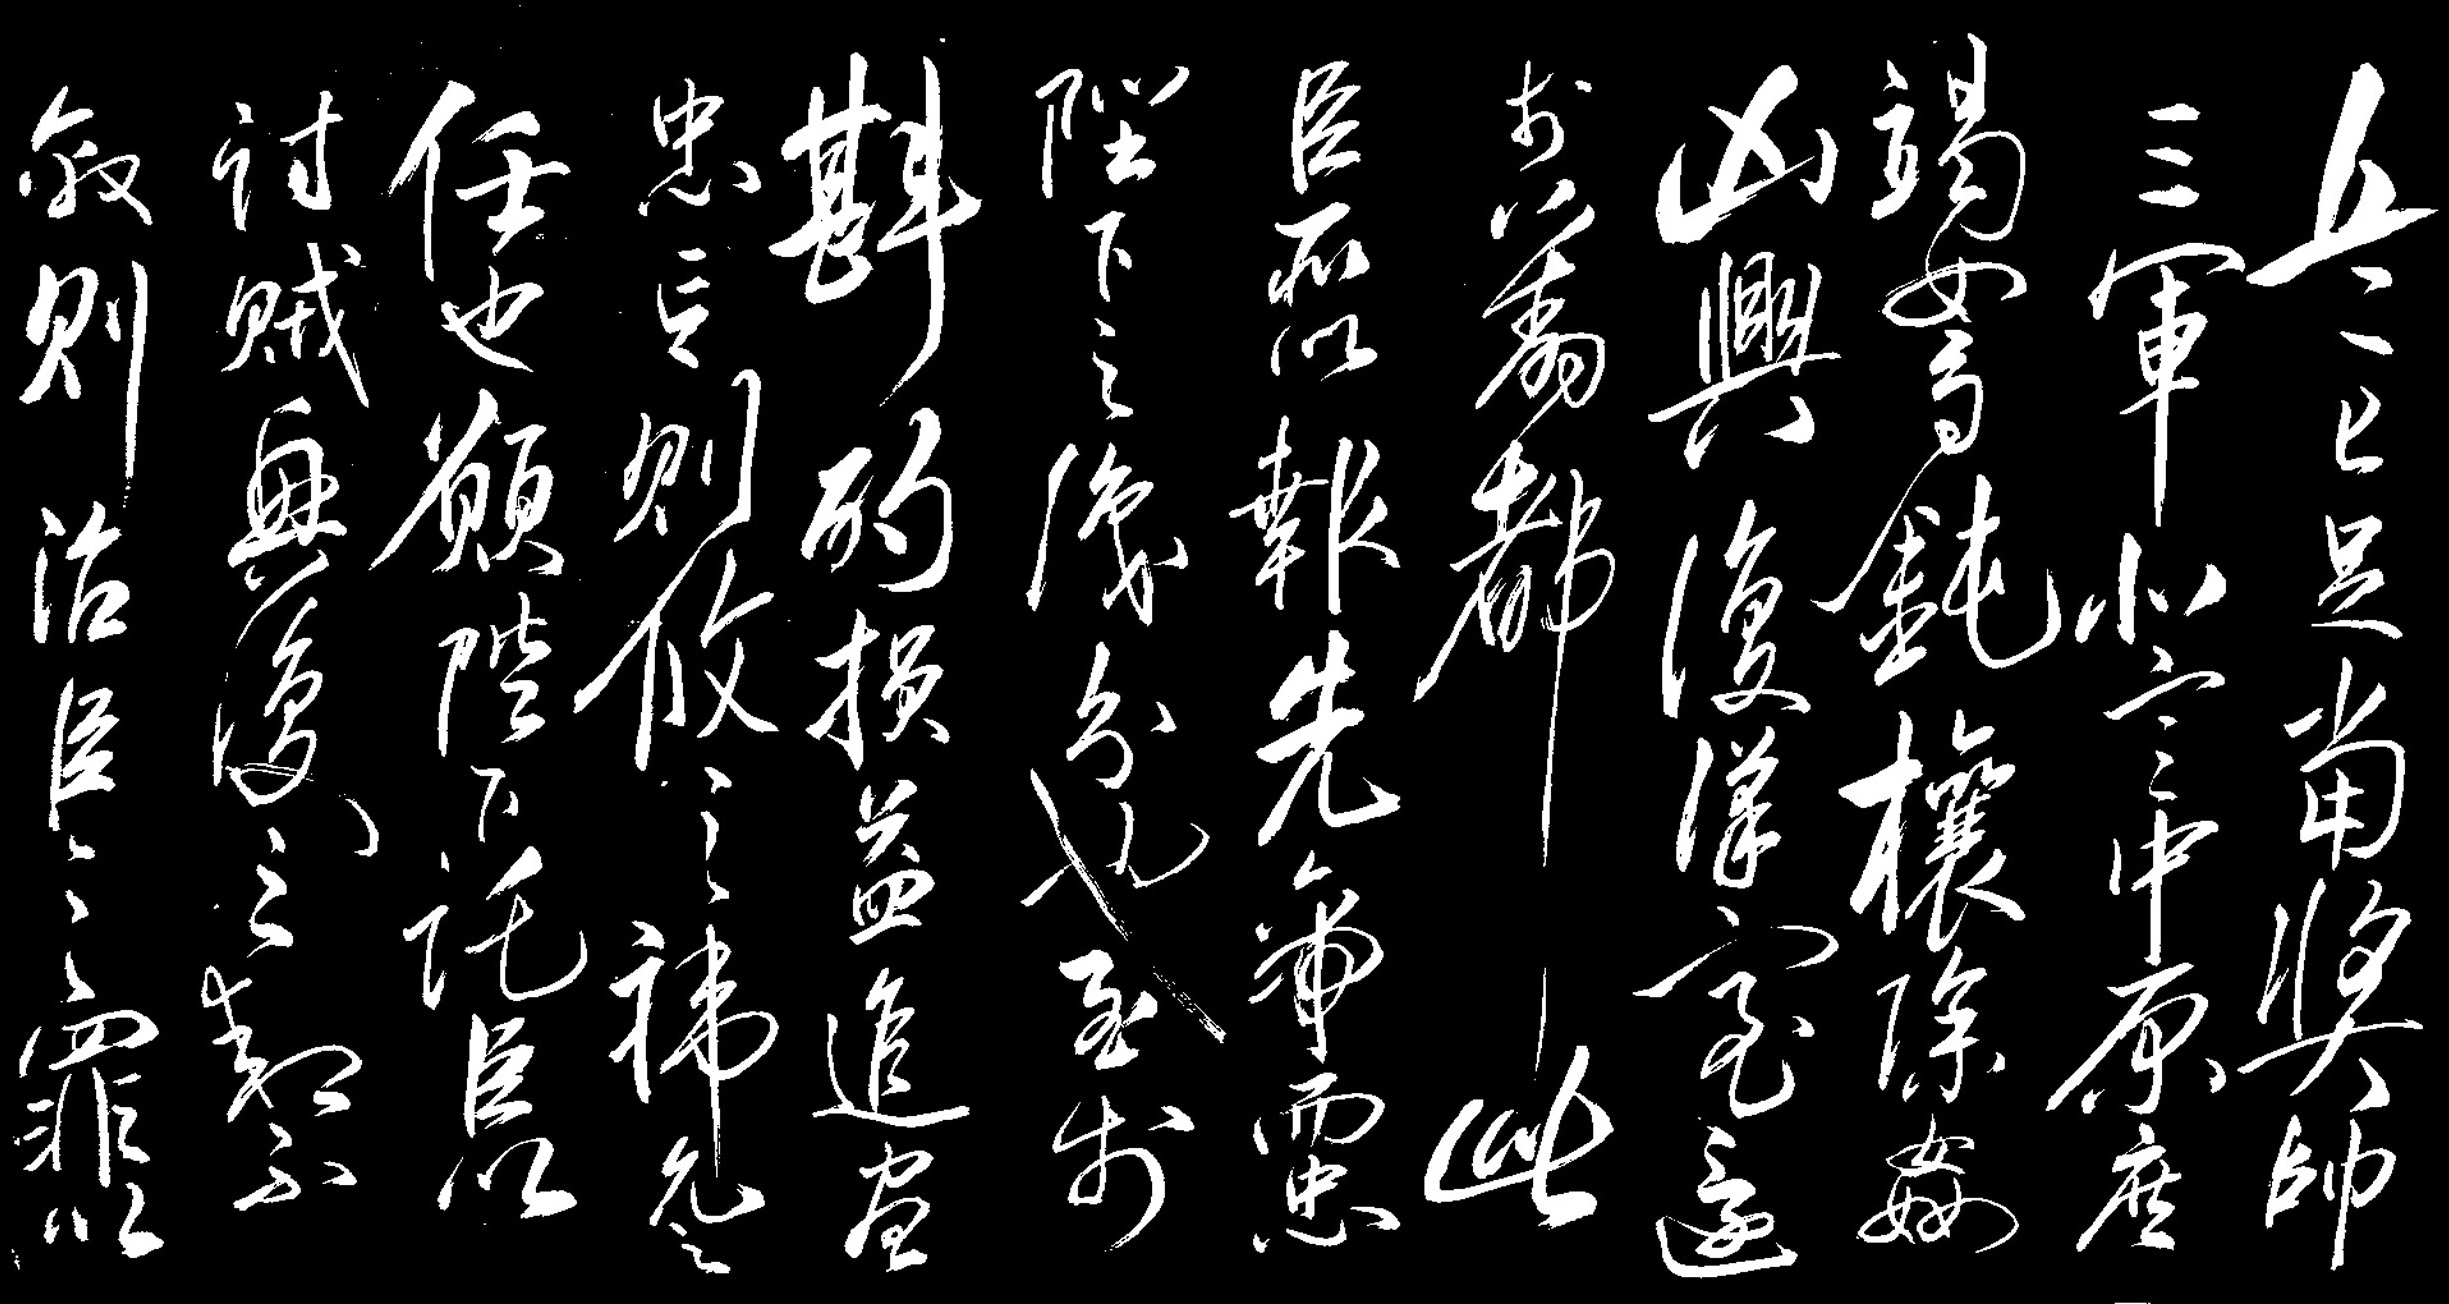 兵已足當獎帥
三軍北定中原庶
竭駑鈍攘除姦
凶興復漢室還
於舊都此
臣所以報先帝而忠
陛下之職分也至於
斟酌損益進盡
忠言則攸之禕允之
任也願陛下託臣以
討賊興復之效不
效則治臣之罪以